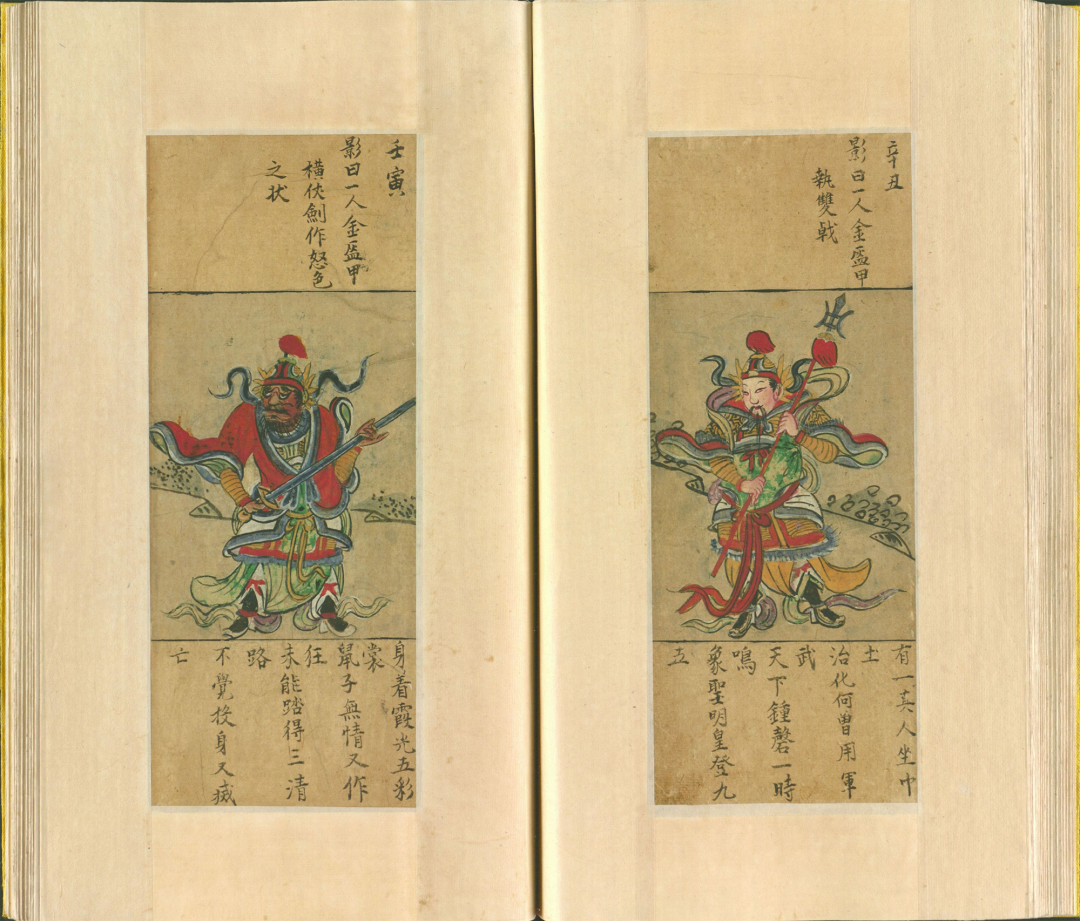 辛丑
影曰一人金盔甲
執雙戟
有一真人坐中
土
治化何曾用軍
武
天下鍾磬一時
鳴
象聖明皇登九
五
壬寅
影曰一人金盔甲
橫仗劍作怒色
之状
身着霞光五彩
裳
鼠子無情又作
狂
未能踏得三清
路
不覺投身又滅
亡